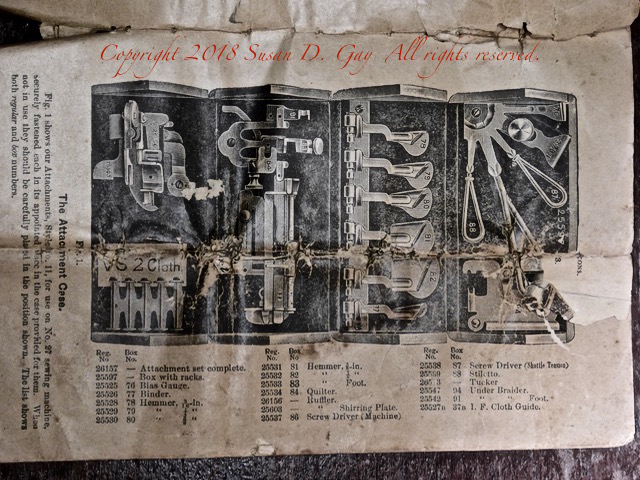 Copyright 2018 Susan D. Gay All rights reserved.
Fig. 1.
The Attachment Case.
Fig. 1 shows our Attachments, Style No. 11, for use on No. 27 sewing machine,
securely fastened each in its appointed place in the case provided for them. When
not in use they should be carefully placed in the position shown. The list shows
both regular and box numbers.
VS 2 Cloth
78
79
80
81
82
88
87
Reg. No Box No.
26157 — Attachment set complete.
— Box with racks.
25525 76 Bias Gauge.
25526 77 Binder.
25528 78 Hemmer,
25529 79 " "
25530 80 " "
Reg. No Box No.
25531 81 Hemmer, -In.
25532 82 " "
25533 83 " Foot.
25534 84 Quilter.
26156 — Ruffler.
25603 — " Shirring Plate.
25537 86 Screw Driver (Machine)
Reg. No. Box No.
25538 87 Screw Driver (Shuttle Tension)
88 Stiletto.
Tucker
25547 94 Under Braider.
25542 91 " " Foot.
25527B 37B I. F. Cloth Guide.